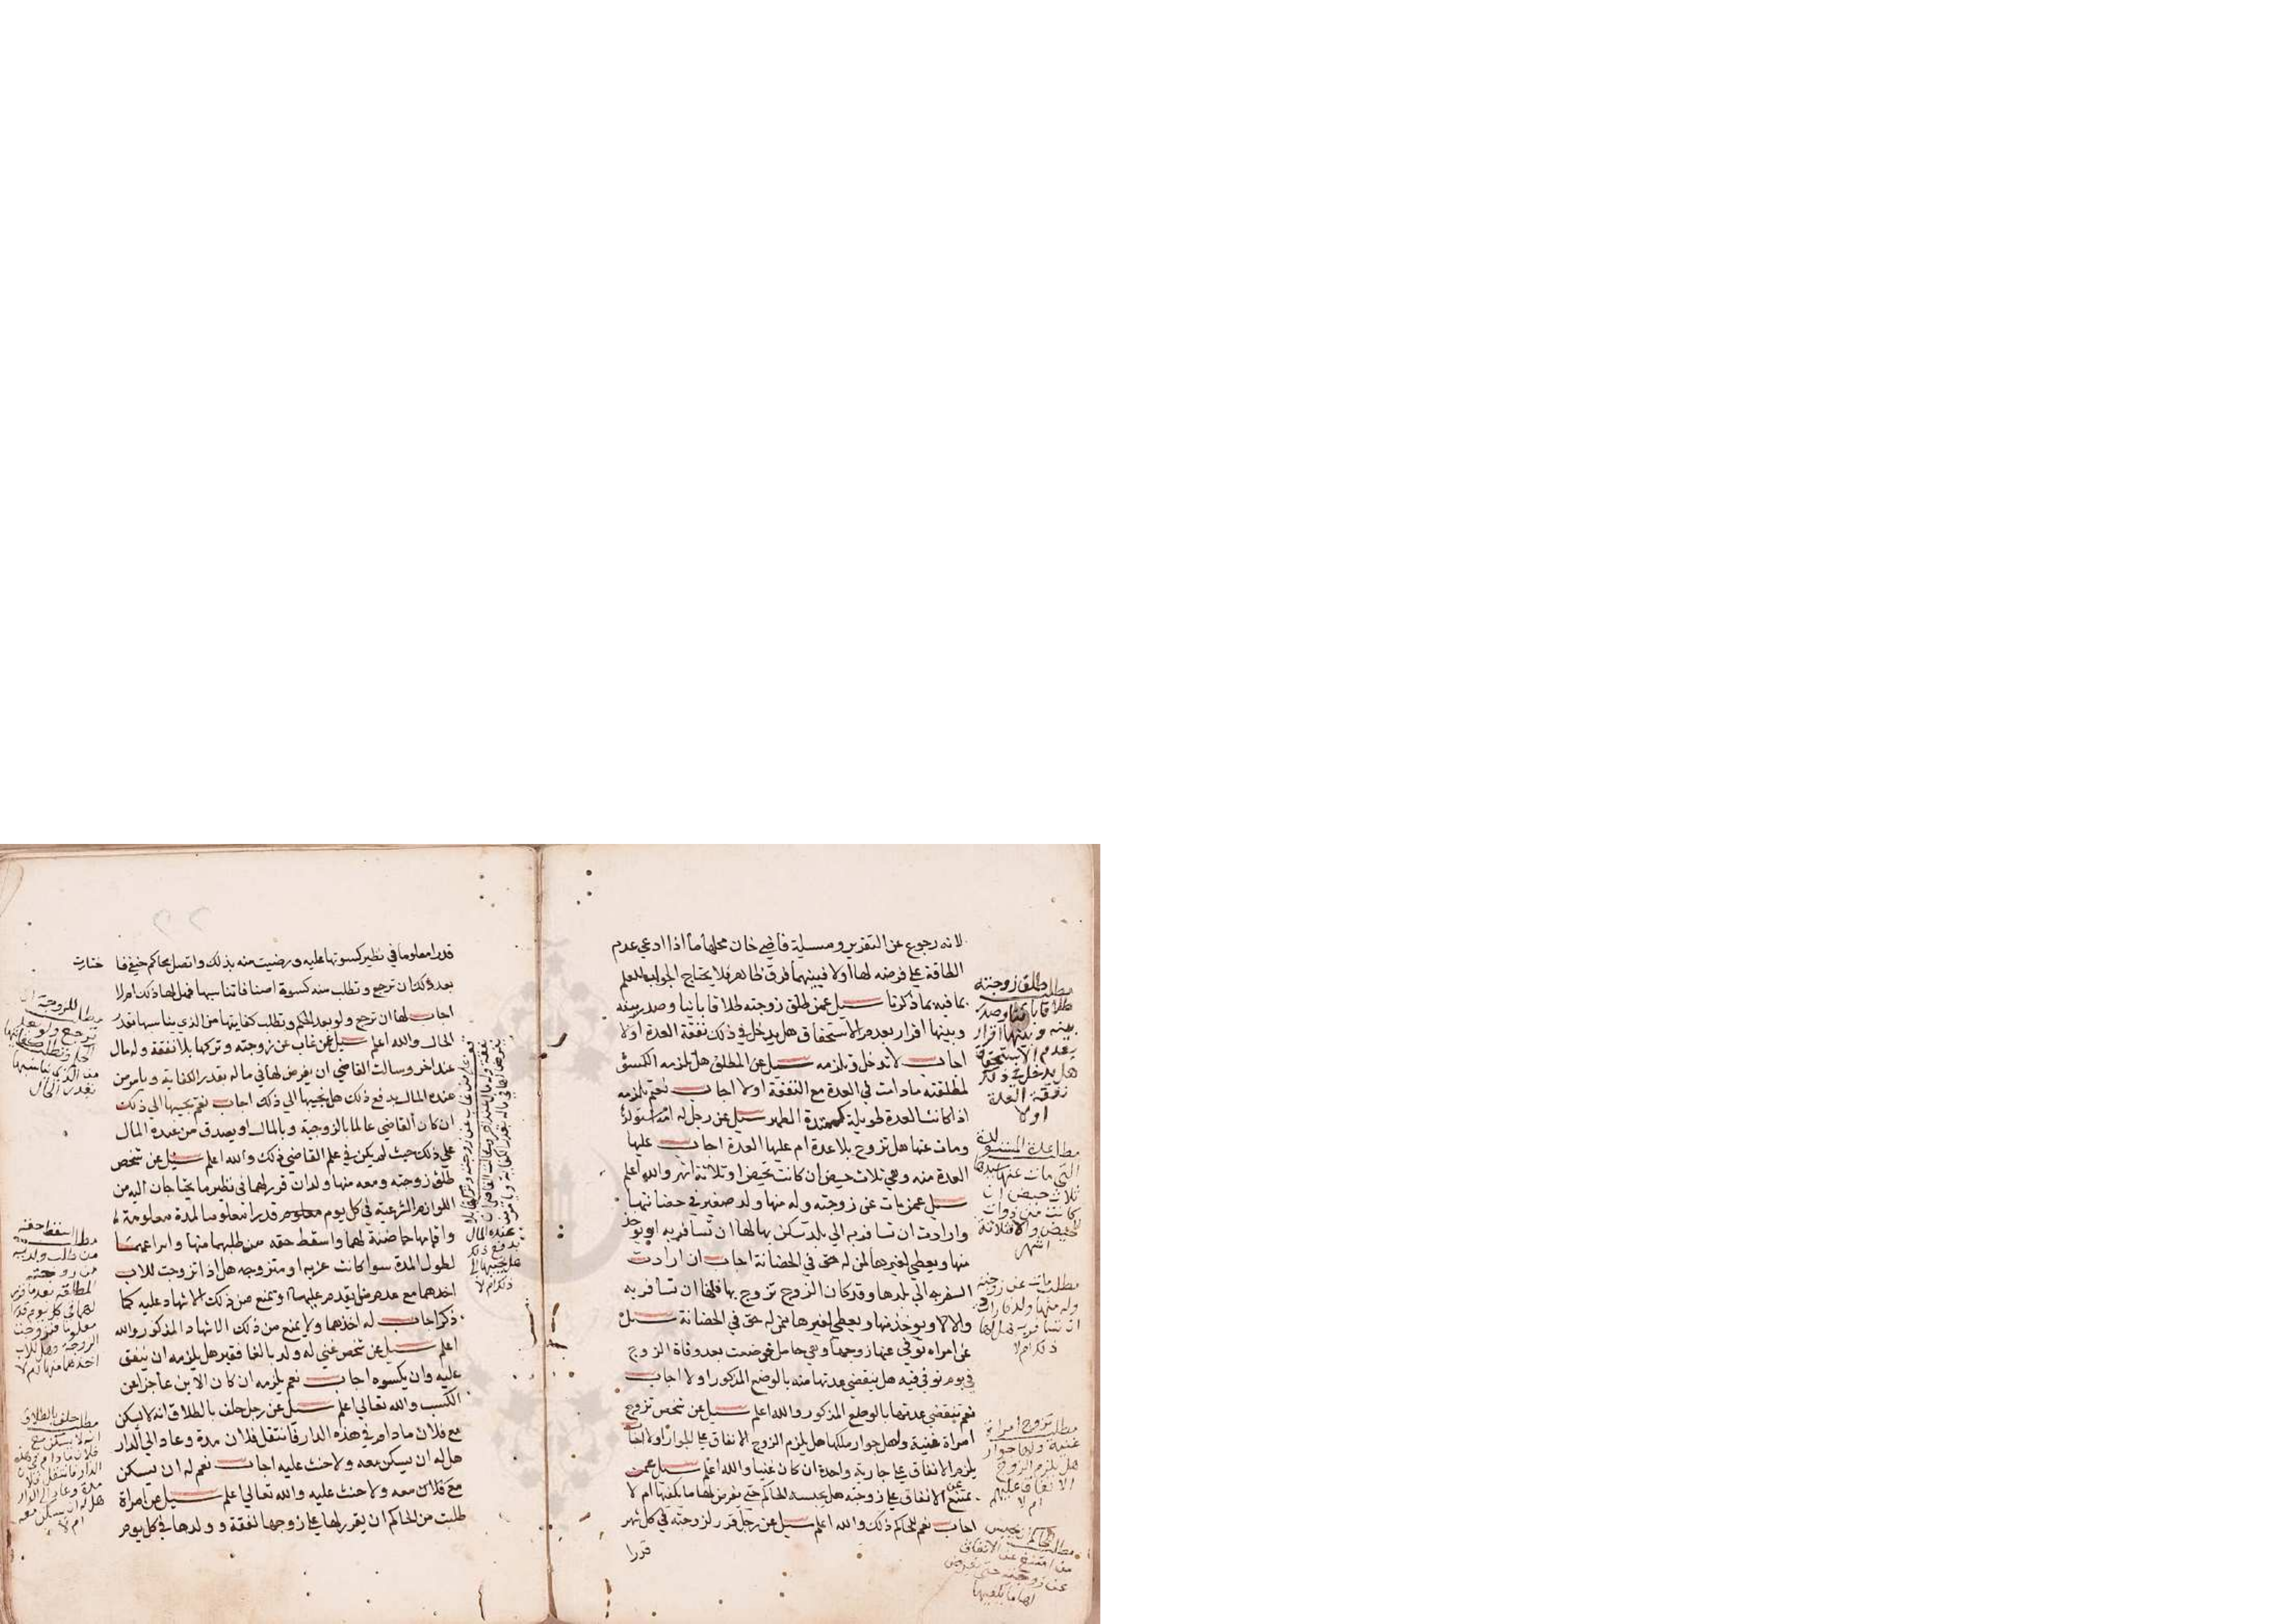 لانه رجوع عن التقدير ومسيلة قاضي خان محلها ما اذا ادعي عدم
الطاقة علي فرضه لها اولا فبينهما فرق ظاهر فلا يحتاج الجواب للعلم
بما فيه بما ذكرنا سيل عمن طلق زوجته طلاقا باينا وصدر بينه
وبينها اقرار بعدم الاستحقاق هل يدخل في ذلك نفقة العدة اولا
اجاب لا تدخل وتلزمه سيل عن المطلق هل تلزمه الكسوة
لمطلقته مادامت في العدة مع النفقة اولا اجاب نعم تلزمه
اذا كانت العدة طويلة كممتدة الطهر سيل عن رجل له امة استولدها
ومات عنها هل تزوج بلا عدة ام عليها العدة اجاب عليها
العدة منه وهي ثلاث حيض ان كانت تحيض او ثلاثة اشهر والله اعلم
سيل عمن مات عن زوجته وله منها ولد صغير في حضانتها
وارادت ان تسافر به الي بلد تسكن بها لها ان تسافر به او يوخذ
منها ويعطي لغيرها لمن له حق في الحضانة اجاب ان ارادت
السفر به الي بلدها وقد كان الزوج تزوج بها فلها ان تسافر به
والا لا ويوخذ منها ويعطي لغيرها ممن له حق في الحضانة سيل
عن امراه توفي عنها زوجها وهي حامل فوضعت بعد وفاة الزوج
في يوم توفي فيه هل ينقضي عدتها منه بالوضع المذكور اولا اجاب
نعم تنقضي عدتها بالوضع المذكور والله اعلم سيل عن شخص تزوج
امراة غنية ولها جوار ملكها هل يلزم الزوج الانفاق علي الجوار اولا اجاب
يلزم الانفاق علي جارية واحدة ان كان غنيا والله اعلم سيل عمن
يمتنع عن الانفاق علي زوجته هل يحبسه الحاكم حتي يفرض لها ما يكفيها ام لا
اجاب نعم للحاكم ذلك والله اعلم سيل عن رجل قرر لزوجته في كل شهر
قدرا
مطلب طلق زوجته
طلاقا باينا وصدر
بينه وبينها اقرار
بعدم الاستحقاق
هل يدخل في ذلك
نفقة العدة
اولا
مطلب عدة المستولدة
التي مات عنها سيدها
ثلاث حيض ان
كانت من ذوات
الحيض والا فثلاثة
اشهر
مطلب مات عن زوجته
وله منها ولد فارادت
ان تسافر به هل لها
ذلك ام لا
مطلب تزوج امراة
غنية ولها جوار
هل يلزم الزوج
الانفاق عليهم
ام لا
مطلب للحاكم ان يحبس
من امتنع عن الانفاق
عن زوجته حتي يفرض
لها ما يكفيها
قدرا معلوما في نظير كسوتها عليه ورضيت منه بذلك واتصل بحاكم حنفي فا
ختارت
بعد ذلك ان ترجع وتطلب منه كسوة اصنافا تناسبها فهل لها ذلك ام لا
اجاب لها ان ترجع ولو بعد الحكم وتطلب كفايتها من الذي يناسبها بقدر
الحال والله اعلم سيل عن غاب عن زوجته وتركها بلا نفقة وله مال
عند اخر وسالت القاضي ان يفرض لها في ماله بقدر الكفاية ويامر من
عنده المال يدفع ذلك هل يجيبها الي ذلك اجاب نعم يجيبها الي ذلك
ان كان القاضي عالما بالزوجية وبالمال او يصدق من عنده المال
علي ذلك حيث لم يكن في علم القاضي ذلك والله اعلم سيل عن شخص
طلق زوجته ومعه منها ولدان قرر لهما في نظير ما يحتاجان اليه من
اللوازم الشرعية في كل يوم معلوم قدرا معلوما لمدة معلومة
واقامها حاضنة لهما واسقط حقه من طلبهما منها
لطول المدة سوا كانت عزبه او متزوجه هل اذا تزوجت للاب
اخذهما مع عدم من يقدم عليها او يمنع من ذلك الاشهاد عليه كما
ذكر اجاب له اخذهما ولا يمنع من ذلك الاشهاد المذكور والله
اعلم سيل عن شخص غني له ولد بالغا فقير هل يلزمه ان ينفق
عليه وان يكسوه اجاب نعم يلزمه ان كان الابن عاجزا عن
الكسب والله تعالي اعلم سيل عن رجل حلف بالطلاق انه لا يسكن
مع فلان مادام في هذه الدار فانتقل فلان مدة وعاد الي الدار
هل له ان يسكن معه ولا حنث عليه اجاب نعم له ان يسكن
مع فلان معه ولا حنث عليه والله تعالي اعلم سيل عن امراة
طلبت من الحاكم ان يقرر لها علي زوجها نفقة وولدها في كل يوم
مطلب للزوجة ان
ترجع ولو بعد
الحكم وتطلب كفايتها
من الذي يناسبها
بقدر الحال
مطلب اسقط حقه
من طلب ولديه
من زوجته
المطلقه بعد ما قرر
لهما في كل يوم قدرا
معلوما فتزوجت
الزوجة وهل للاب
اخذهما منها ام لا
مطلب حلف بالطلاق
انه لا يسكن مع
فلان مادام في هذه
الدار فانتقل فلان
مدة وعاد الي الدار
هل له ان يسكن معه
ام لا
غاب عن زوجته وتركها بلا
نفقة وله مال عند اخر وسالت القاضي ان
يفرض لها في ماله بقدر الكفاية ويامر من
عنده المال
يدفع ذلك
هل يجيبها الي
ذلك ام لا